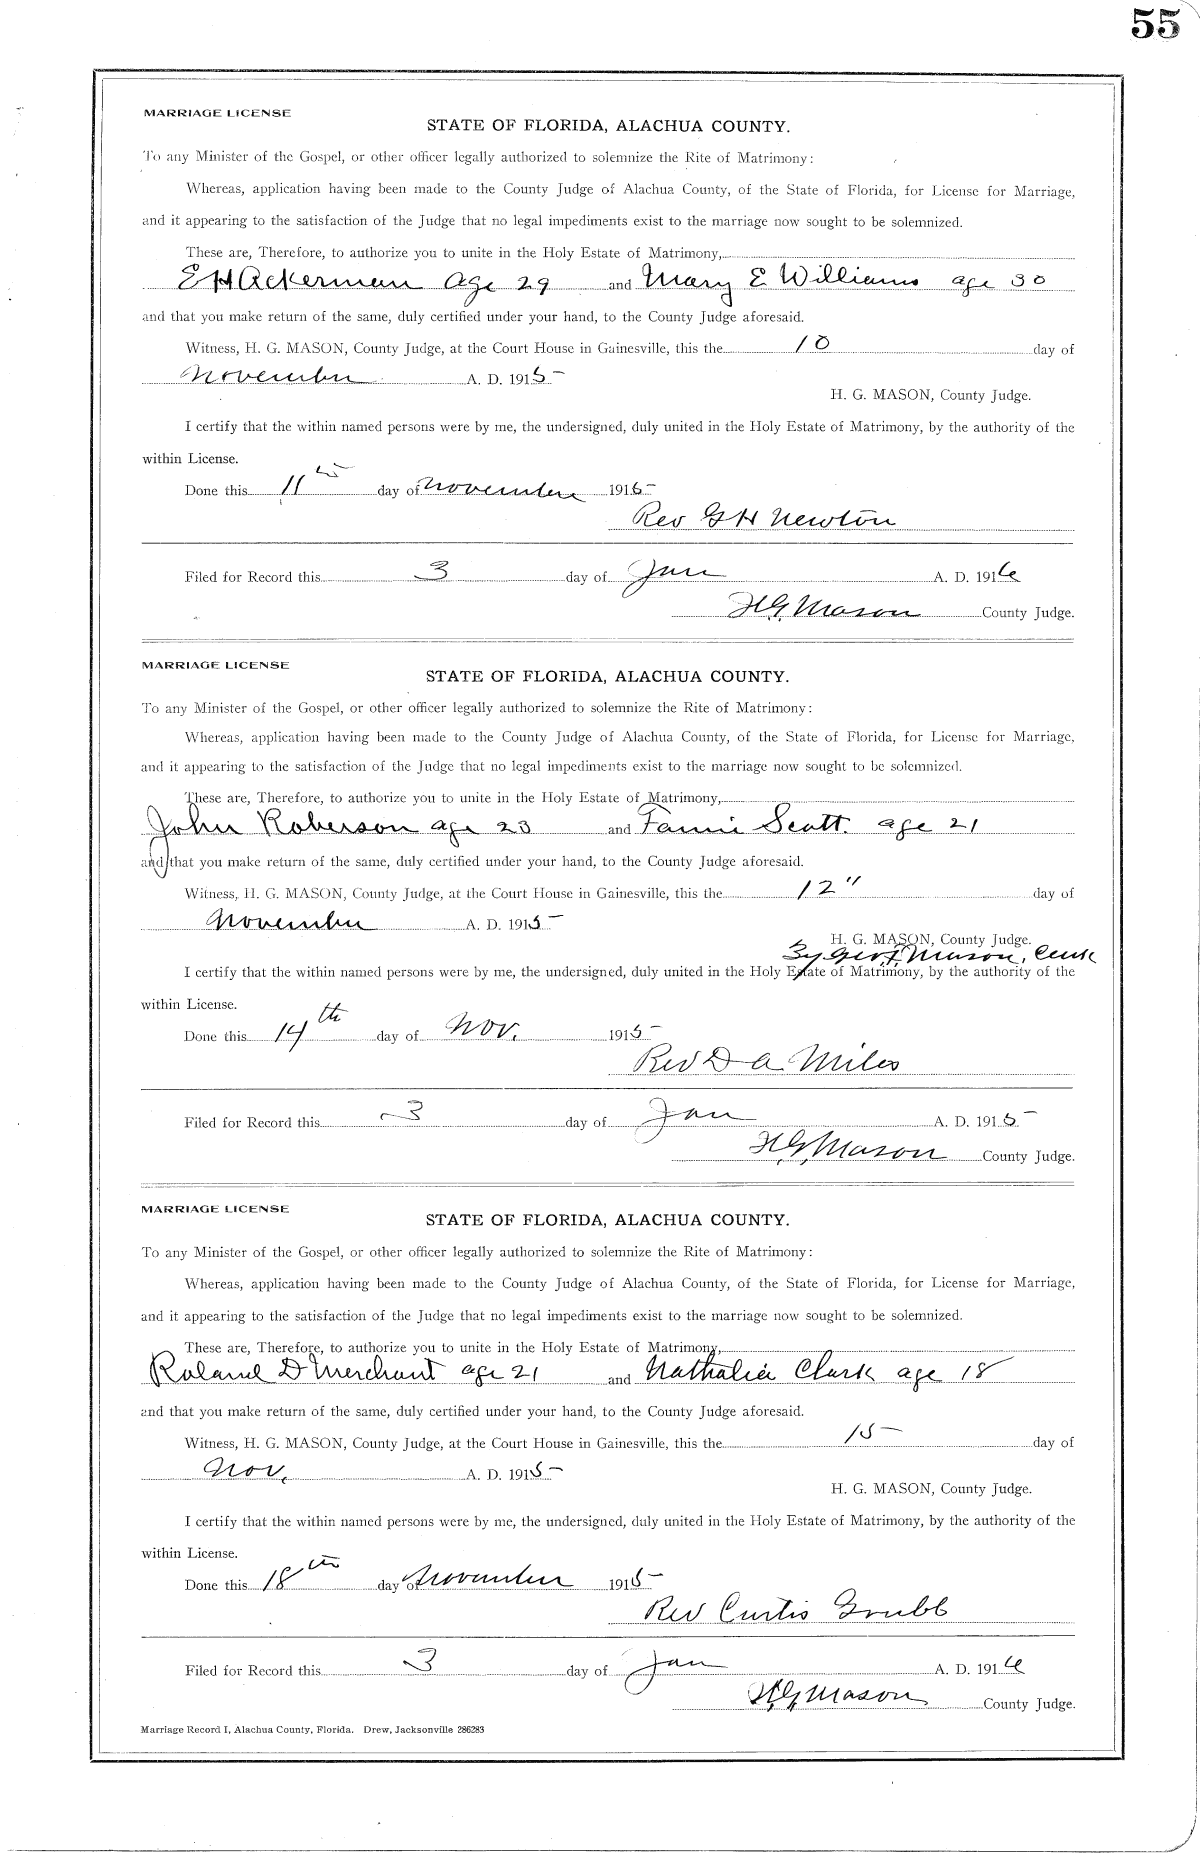 55
MARRIAGE LICENSE
STATE OF FLORIDA, ALACHUA COUNTY.
To any Minister of the Gospel, or other officer legally authorized to solemnize the Rite of Matrimony:
Whereas, application having been made to the County Judge of Alachua County, of the State of Florida, for License for Marriage,
and it appearing to the satisfaction of the Judge that no legal impediments exist to the marriage now sought to be solemnized.
These are, Therefore, to authorize you to unite in the Holy Estate of Matrimony,
E H Ackerman age 29 and Mary E Williams age 30
and that you make return of the same, duly certified under your hand, to the County Judge aforesaid.
Witness, H. G. MASON, County Judge, at the Court House in Gainesville, this the 10 day of
November A. D. 1915
H. G. MASON, County Judge.
I certify that the within named persons were by me, the undersigned, duly united in the Holy Estate of Matrimony, by the authority of the
within License.
Done this 11th day of November 1915
Rev G H Newton
Filed for Record this 3 day of Jan A. D. 1916
H.G. Mason County Judge.
MARRIAGE LICENSE
STATE OF FLORIDA, ALACHUA COUNTY.
To any Minister of the Gospel, or other officer legally authorized to solemnize the Rite of Matrimony:
Whereas, application having been made to the County Judge of Alachua County, of the State of Florida, for License for Marriage,
and it appearing to the satisfaction of the Judge that no legal impediments exist to the marriage now sought to be solemnized.
These are, Therefore, to authorize you to unite in the Holy Estate of Matrimony,
John Roberson age 23 and Fannie Scott. age 21
and that you make return of the same, duly certified under your hand, to the County Judge aforesaid.
Witness, H. G. MASON, County Judge, at the Court House in Gainesville, this the 12" day of
November A. D. 1915
H. G. MASON, County Judge.
By Mason, Clerk
I certify that the within named persons were by me, the undersigned, duly united in the Holy Estate of Matrimony, by the authority of the
within License.
Done this 14th day of Nov. 1915
Rev D A Miles
Filed for Record this 3 day of Jan A. D. 1915
H.G. Mason County Judge.
MARRIAGE LICENSE
STATE OF FLORIDA, ALACHUA COUNTY.
To any Minister of the Gospel, or other officer legally authorized to solemnize the Rite of Matrimony:
Whereas, application having been made to the County Judge of Alachua County, of the State of Florida, for License for Marriage,
and it appearing to the satisfaction of the Judge that no legal impediments exist to the marriage now sought to be solemnized.
These are, Therefore, to authorize you to unite in the Holy Estate of Matrimony,
Roland D Merchant age 21 and Nathalia Clark age 18
and that you make return of the same, duly certified under your hand, to the County Judge aforesaid.
Witness, H. G. MASON, County Judge, at the Court House in Gainesville, this the 15 day of
Nov. A. D. 1915
H. G. MASON, County Judge.
I certify that the within named persons were by me, the undersigned, duly united in the Holy Estate of Matrimony, by the authority of the
within License.
Done this 18th day of November 1915
Rev Curtis Grubb
Filed for Record this 3 day of Jan A. D. 1916
H.G. Mason County Judge.
Marriage Record I, Alachua County, Florida. Drew, Jacksonville 286283